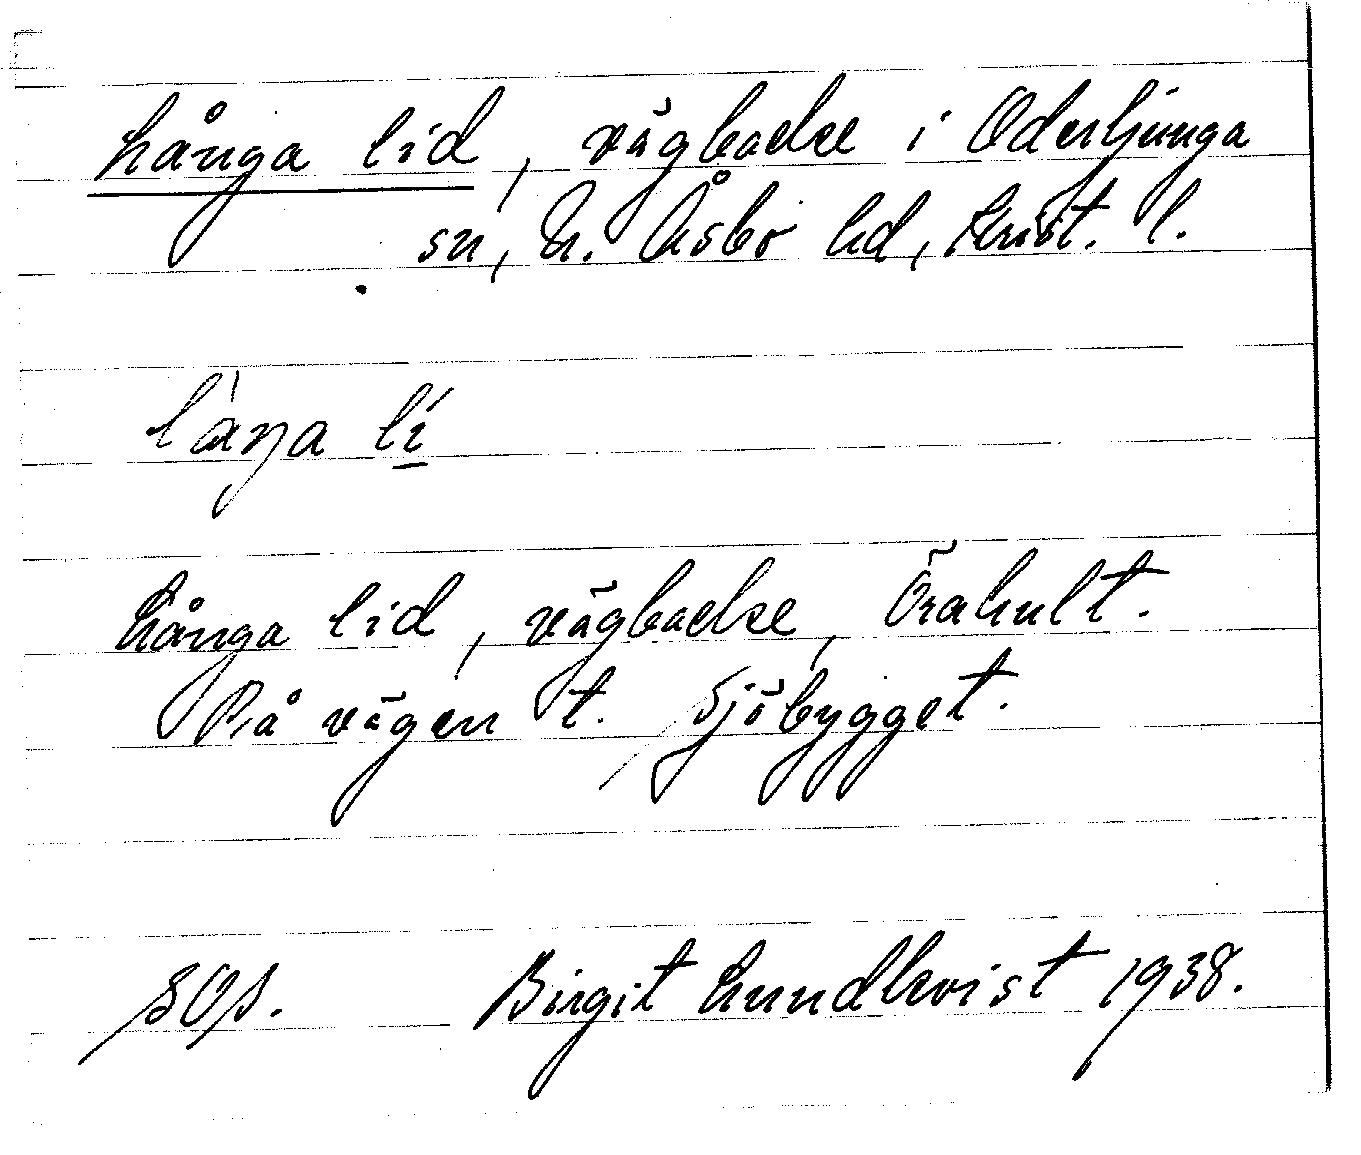 Långa lid, vägbacke i Oderljunga
sn, N. Åsbo hd, Krist. l.
làŋa lí
Långa lid, vägbacke, Örahult.
På vägen t. Sjöbygget.
SOA.
Birgit Lundkvist 1938.